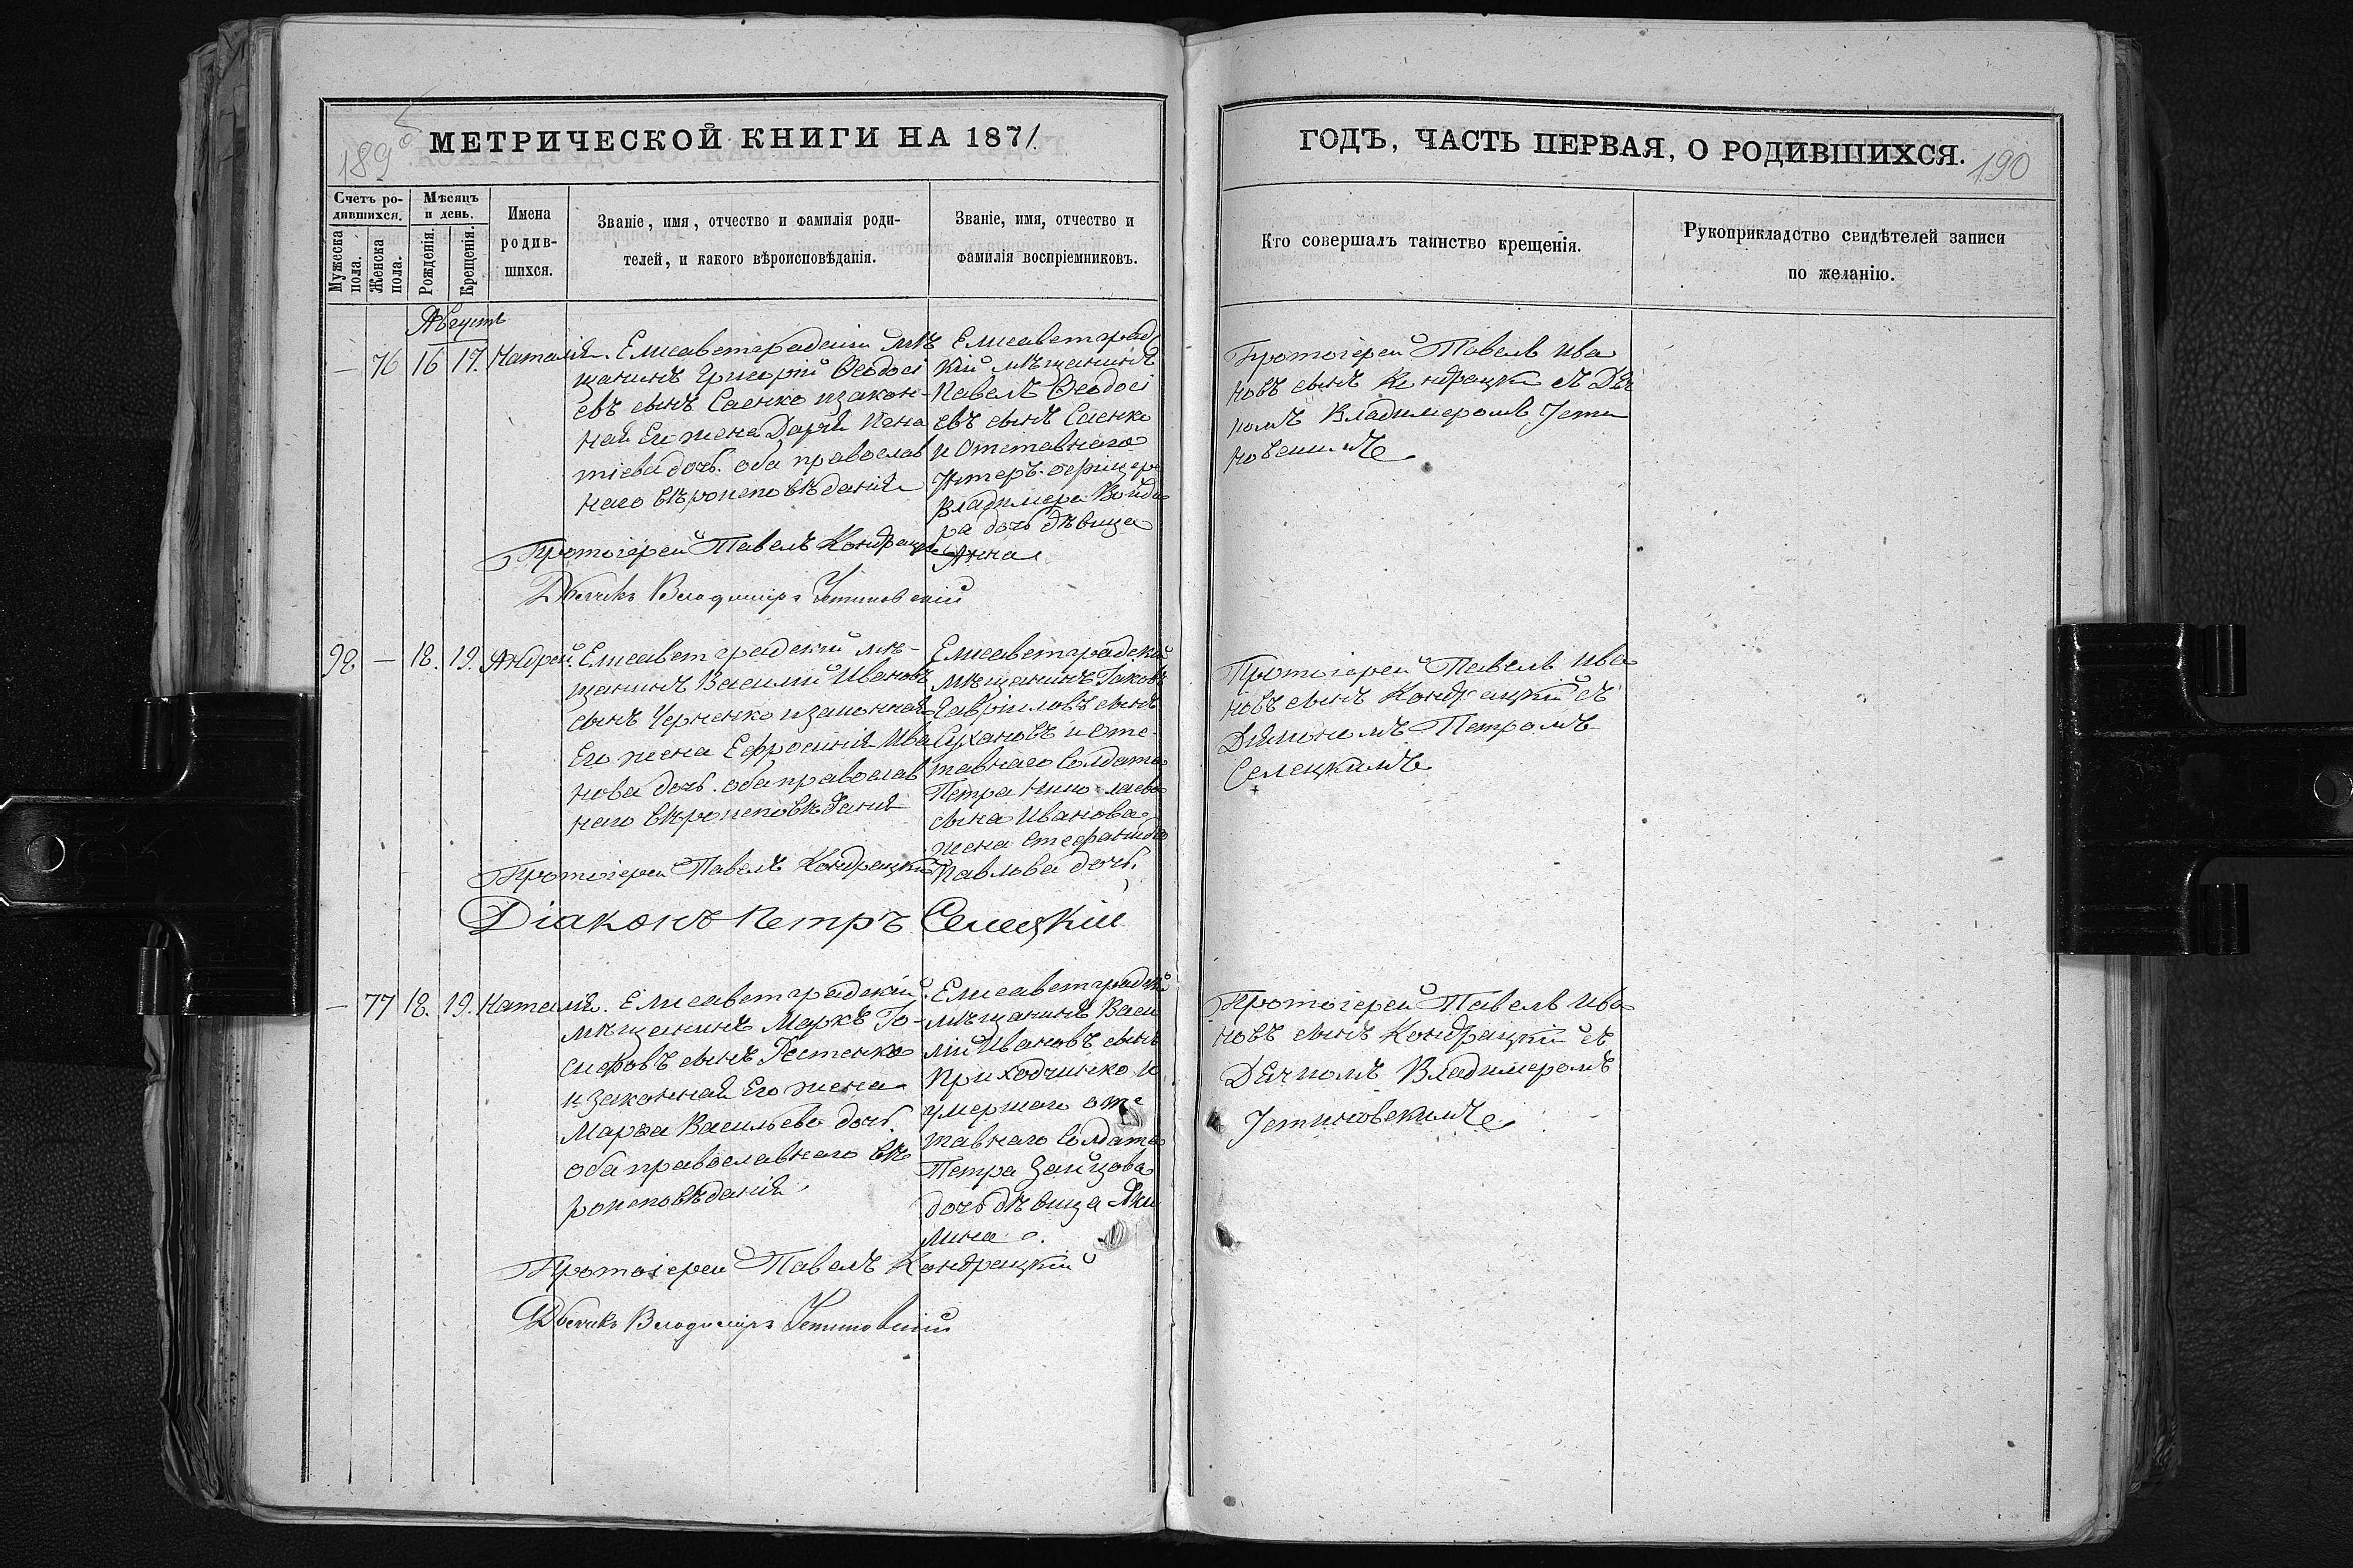 189 б
МЕТРИЧЕСКОЙ КНИГИ НА 1871.
Счетъ ро-
дившихся.
Мужеска пола.
Женска пола.
Мѣсяцъ
и день.
Рожденія.
Крещенія.
Имена
родив-
шихся.
Званіе, имя, отчество и фамилія роди-
телей, и какого вѣроисповѣданія.
Званіе, имя, отчество и
фамилія воспріемниковъ.
Августъ
— 76 16 17. Наталія.
Елисаветградскій мѣ
щанинъ Григорій Ѳеодосі
евъ сынъ Саенко и закон-
ная Его жена Дарія
тіева дочь. оба православ
наго вѣроисповѣданія
Елисаветград
кій мѣщанинъ
Павелъ Ѳеодосі
евъ сынъ Саенко
и Отставнаго
Унтеръ-офицера
Владимера
ра дочь дѣвица
Анна
Протоіерей Павелъ Кондрацкій
Дьячекъ Владимиръ Устиновскій
98 — 18. 19. Андрей.
Елисаветградскій мѣ-
щанинъ Василій Ивановъ
сынъ Черненко и законная
Его жена Ефросинія Ива
нова дочь. оба православ
наго вѣроисповѣданія
Елисаветградской
мѣщанинъ Іаковъ
Гавріиловъ сынъ
Сухановъ и Отс-
тавнаго Солдата
Петра Николаева
сына Иванова
жена Стефанида
Павлова дочь.
Протоіерей Павелъ Кондрацкій
Діаконъ Петръ Селецкій
— 77 18. 19. Наталія.
Елисаветградскій
мѣщанинъ Маркъ Іо-
сифовъ сынъ
и законная Его жена
Марѳа Васильева дочь.
оба православнаго вѣ
роисповѣданія
Елисаветградскій
мѣщанинъ Васи
лій Ивановъ сынъ
Приходченко и
умершаго отс
тавнаго Солдата
Петра Зайцова
дочь дѣвица Аки
лина.
Протоіерей Павелъ Кондрацкій
Дьячекъ Владимиръ Устиновскій
ГОДЪ, ЧАСТЬ ПЕРВАЯ, О РОДИВШИХСЯ.
190
Кто совершалъ таинство крещенія.
Рукоприкладство свидѣтелей записи
по желанію.
Протоіерей Павелъ Ива
новъ сынъ Кондрацкій съ Дья
комъ Владимеромъ Усти
новскимъ
Протоіерей Павелъ Ива
новъ сынъ Кондрацкій съ
Діякономъ Петромъ
Селецкимъ
Протоіерей Павелъ Ива
новъ сынъ Кондрацкій съ
Дячкомъ Владимеромъ
Устиновскимъ